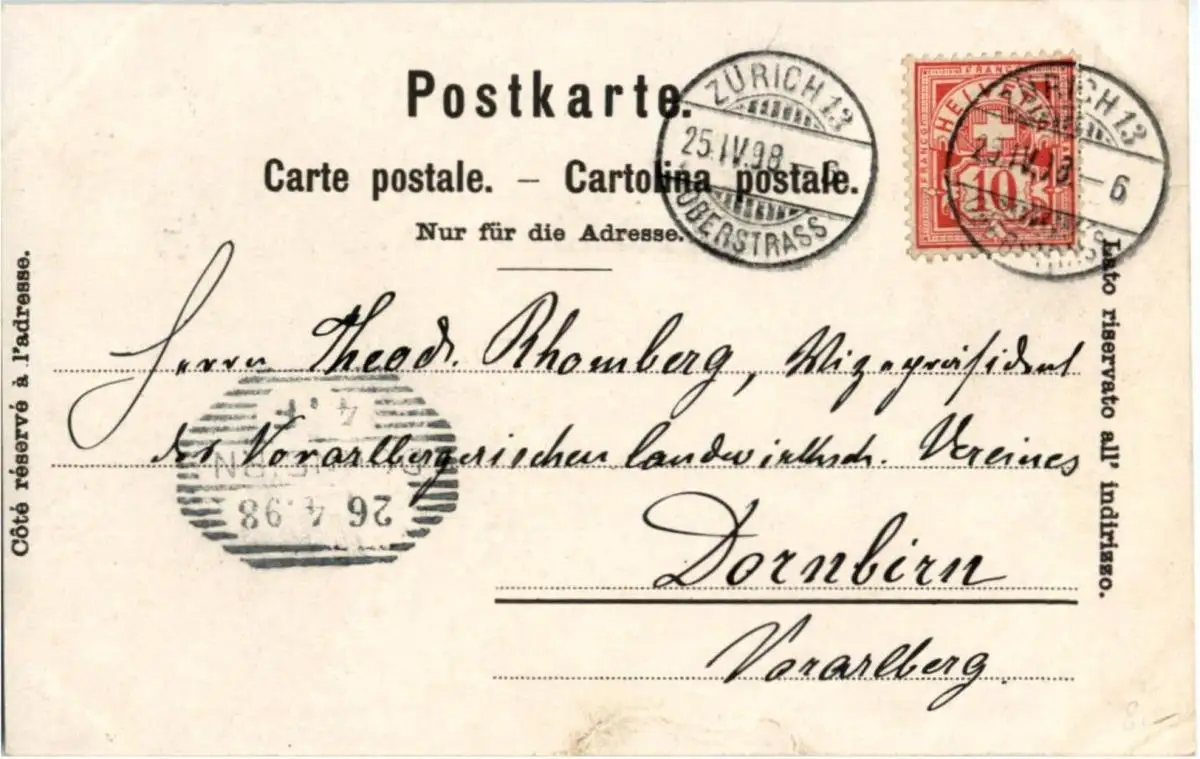 Postkarte.
Carte postale. – Cartolina postale.
Nur für die Adresse.
ZÜRICH 13
25.IV.98.– 6
OBERSTRASS
FRANCO
HELVETIA
FRANCO
10
ZÜRICH 13
25.IV.98 – 6
OBERSTRASS
Côté réservé à l'adresse.
Lato riservato all' indirizzo.
Herrn Theod. Rhomberg, Vizepräsident
des Vorarlbergerischen landwirthsch. Vereines
Dornbirn
Vorarlberg.
26 4.98